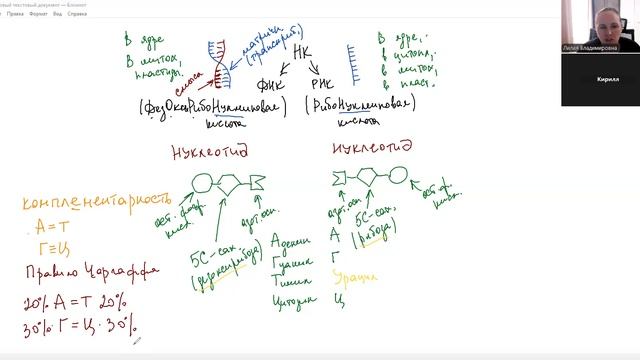 Правка Формат Вид Справка
Лилия Владимировна
Кирилл
в ядре
в митох,
пластиды.
матричн
(транскриб.)
смысл
НК
в ядре,
в цитопл,
в митох,
в пласт.
ДНК
РНК
(ДезОксиРибоНуклеиновая
кислота
(РибоНуклеиновая)
кислота
Нуклеотид
Нуклеотид
ост. фосф.
кисл.
5С-сах.
(дезоксирибоза)
азот. осн.
азот. осн.
5С-сах.
(рибоза)
ост. ф.
кисл.
комплементарность
А=Т
Г≡Ц
Правило Чаргаффа
20% А=Т 20%
30% Г=Ц 30%
Аденин А
Гуанин Г
Тимин Урацил
Цитозин Ц